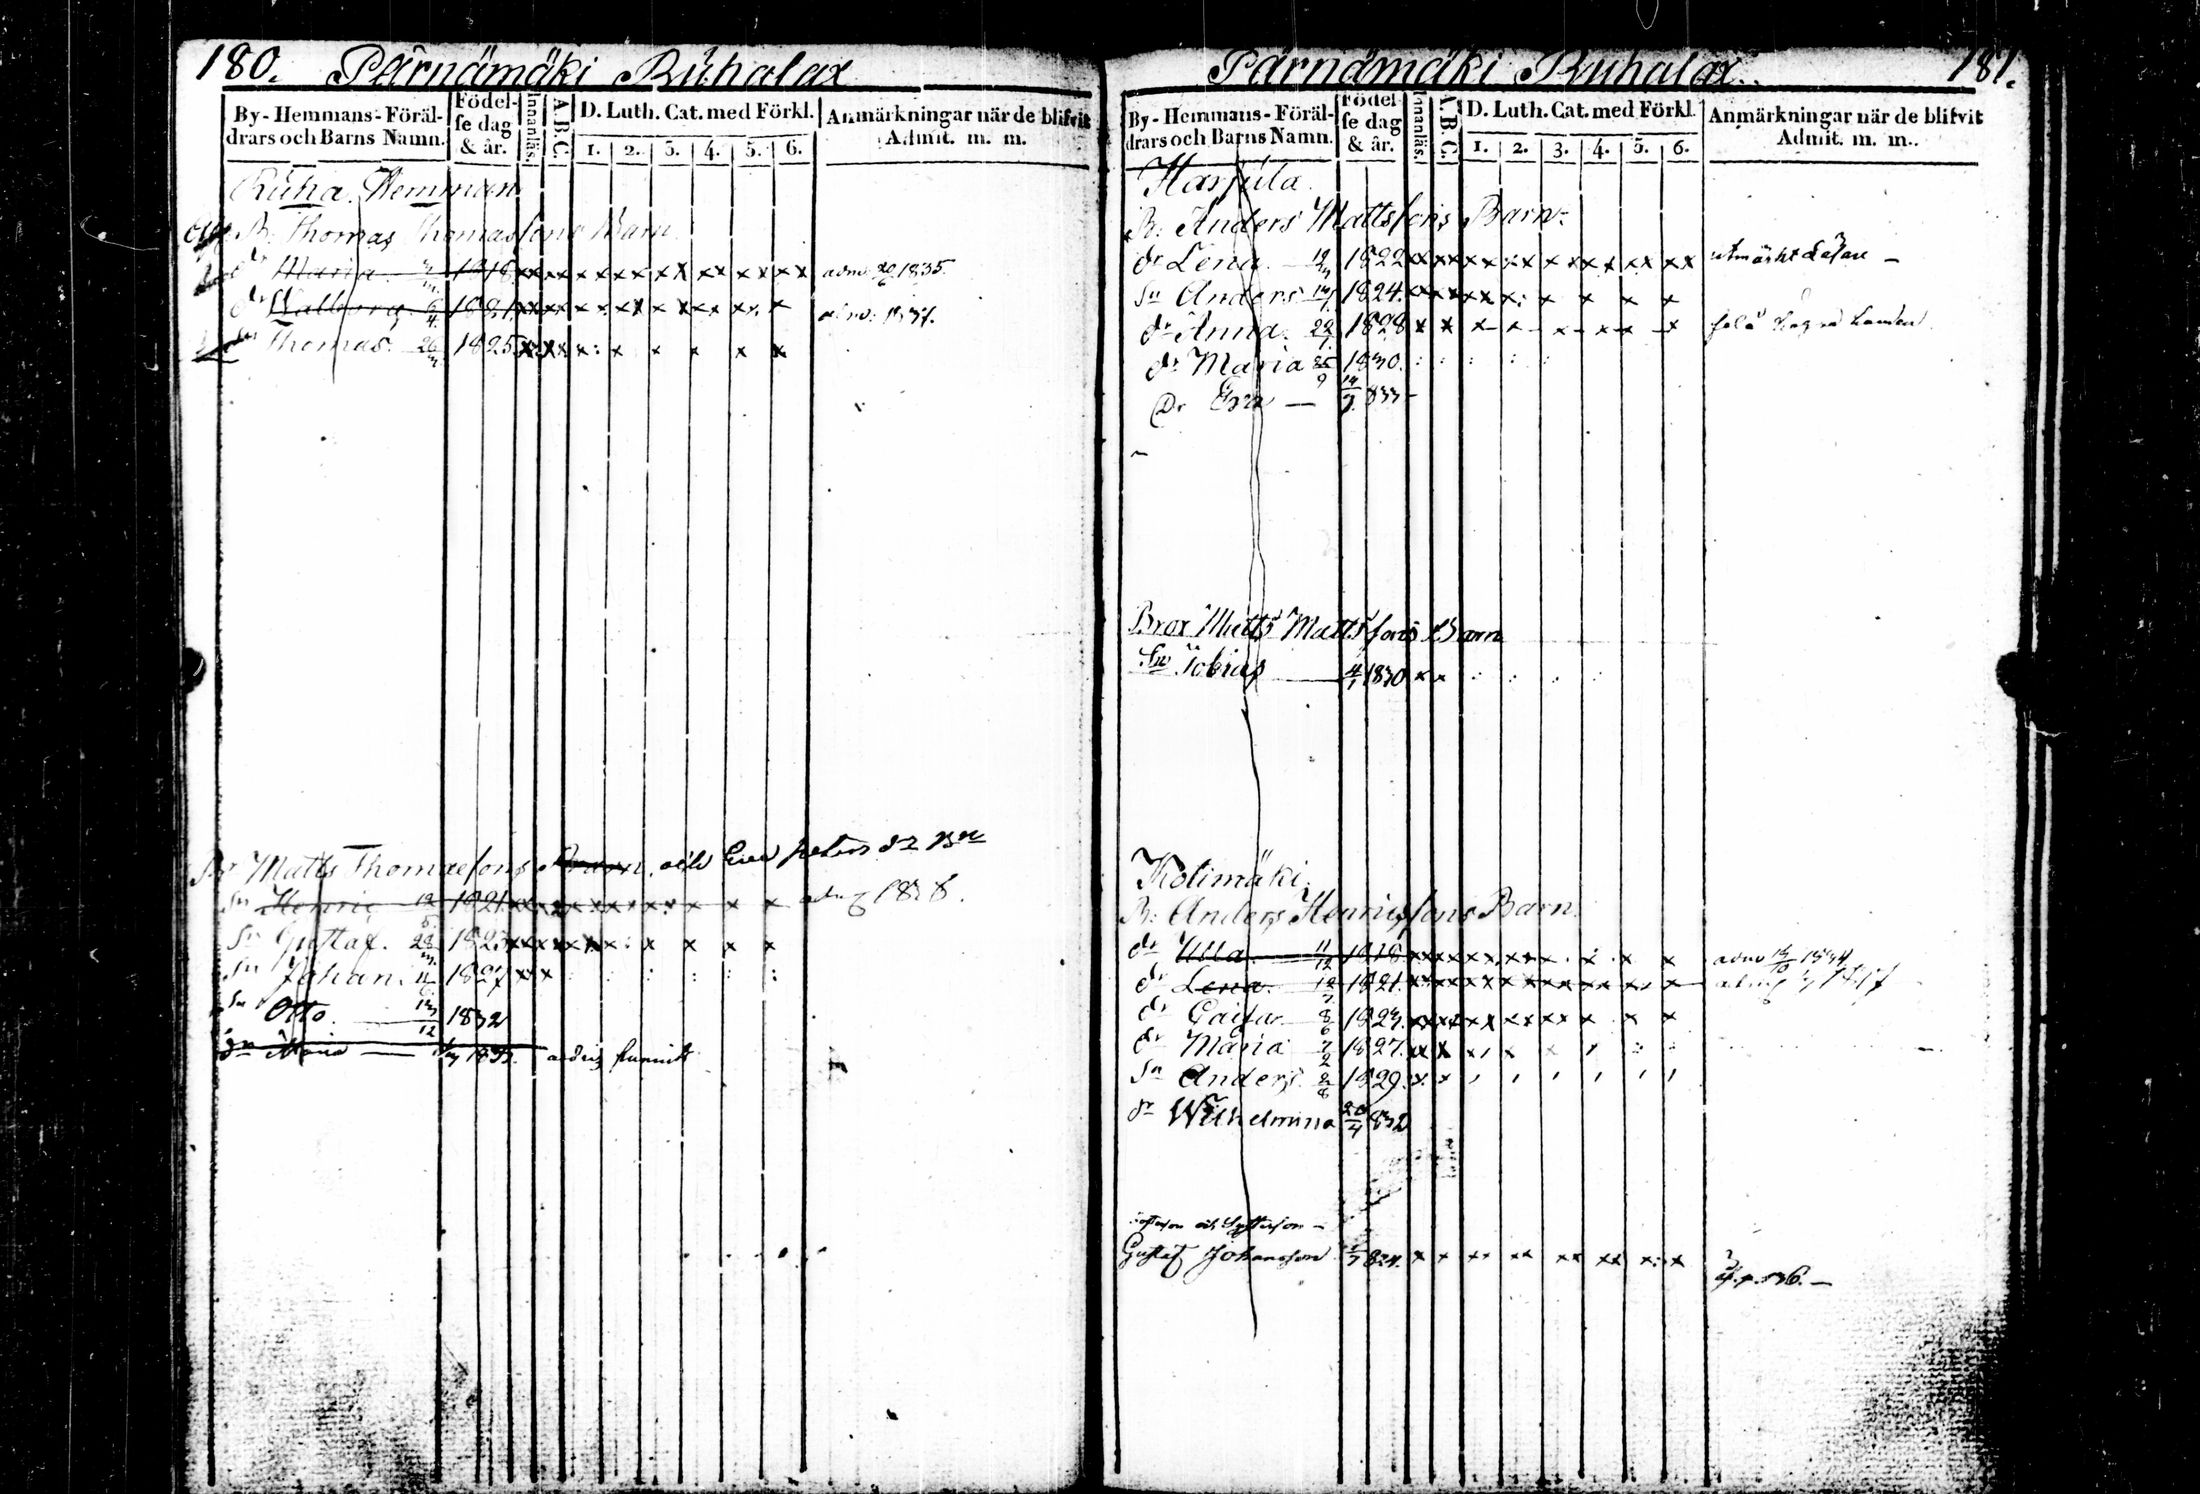 180. Pärnämäki Ruhalax
By-Hemmans-Föräl-
drars och Barns Namn.
Födel-
se dag
& år.
Innanläs.
A.B.C.
D. Luth. Cat. med Förkl.
1. 2. 3. 4. 5. 6.
Anmärkningar när de blifvit
Admit. m. m.
Ruha Hemman
B: Thomas Thomassons Barn
dr Maria 1818 xx xx x x x x x x x x x x x x admo: 1835.
dr Walborg 6/4 1821 xx xx x x x x x x x x x x x admo: 1837.
Sn Thomas 1825 x x x x x: x x x x x
Br Matts Thomassons Barn
Sn Henric 1821 x x x x x x x x x x x x 1838.
Sn Gustaf. 1823 x x x x x x x : x x x x
Sn Johan. 1827 x x x : : : : : :
Sn Otto. 13/12 1832
Maria
181.
Pärnämäki Ruhalax.
By-Hemmans-Föräl-
drars och Barns Namn.
Födel-
se dag
& år.
Innanläs.
A.B.C.
D. Luth. Cat. med Förkl.
1. 2. 3. 4. 5. 6.
Anmärkningar när de blifvit
Admit. m. m.
Harjula.
B: Anders Mattssons Barn.
dr Lena 1822 xx xx x x x x x x x x x x x x utmärkt Läsare —
Sn Anders 1824. xx xx x x x : x x x x
dr Anna. 1828 x x x- x- x- x x -x
dr Maria 25/9 1830. : : : : :
Dr Eva — 833 —
Bror Matts Mattssons Barn
Sn Tobias 4/1 1830 x x : : : :
Kolimäki.
B: Anders Henrigssons Barn.
dr Ulla 11/12 1818 xx xx x x x x x . x . x x admo 1834
dr Lena. 1821. xx xx x x x x x x x x x x x
dr Caisa 8/6 1823. xx xx x x x x x x x x x
dr Maria 7/2 1827. xx x x , x x , : :
Sn Anders 2/8 1829. x x , , , , , ,
dr Wilhelmina 20/4 832
Gustaf Johansson 824. x x x x x x x x x x x : x